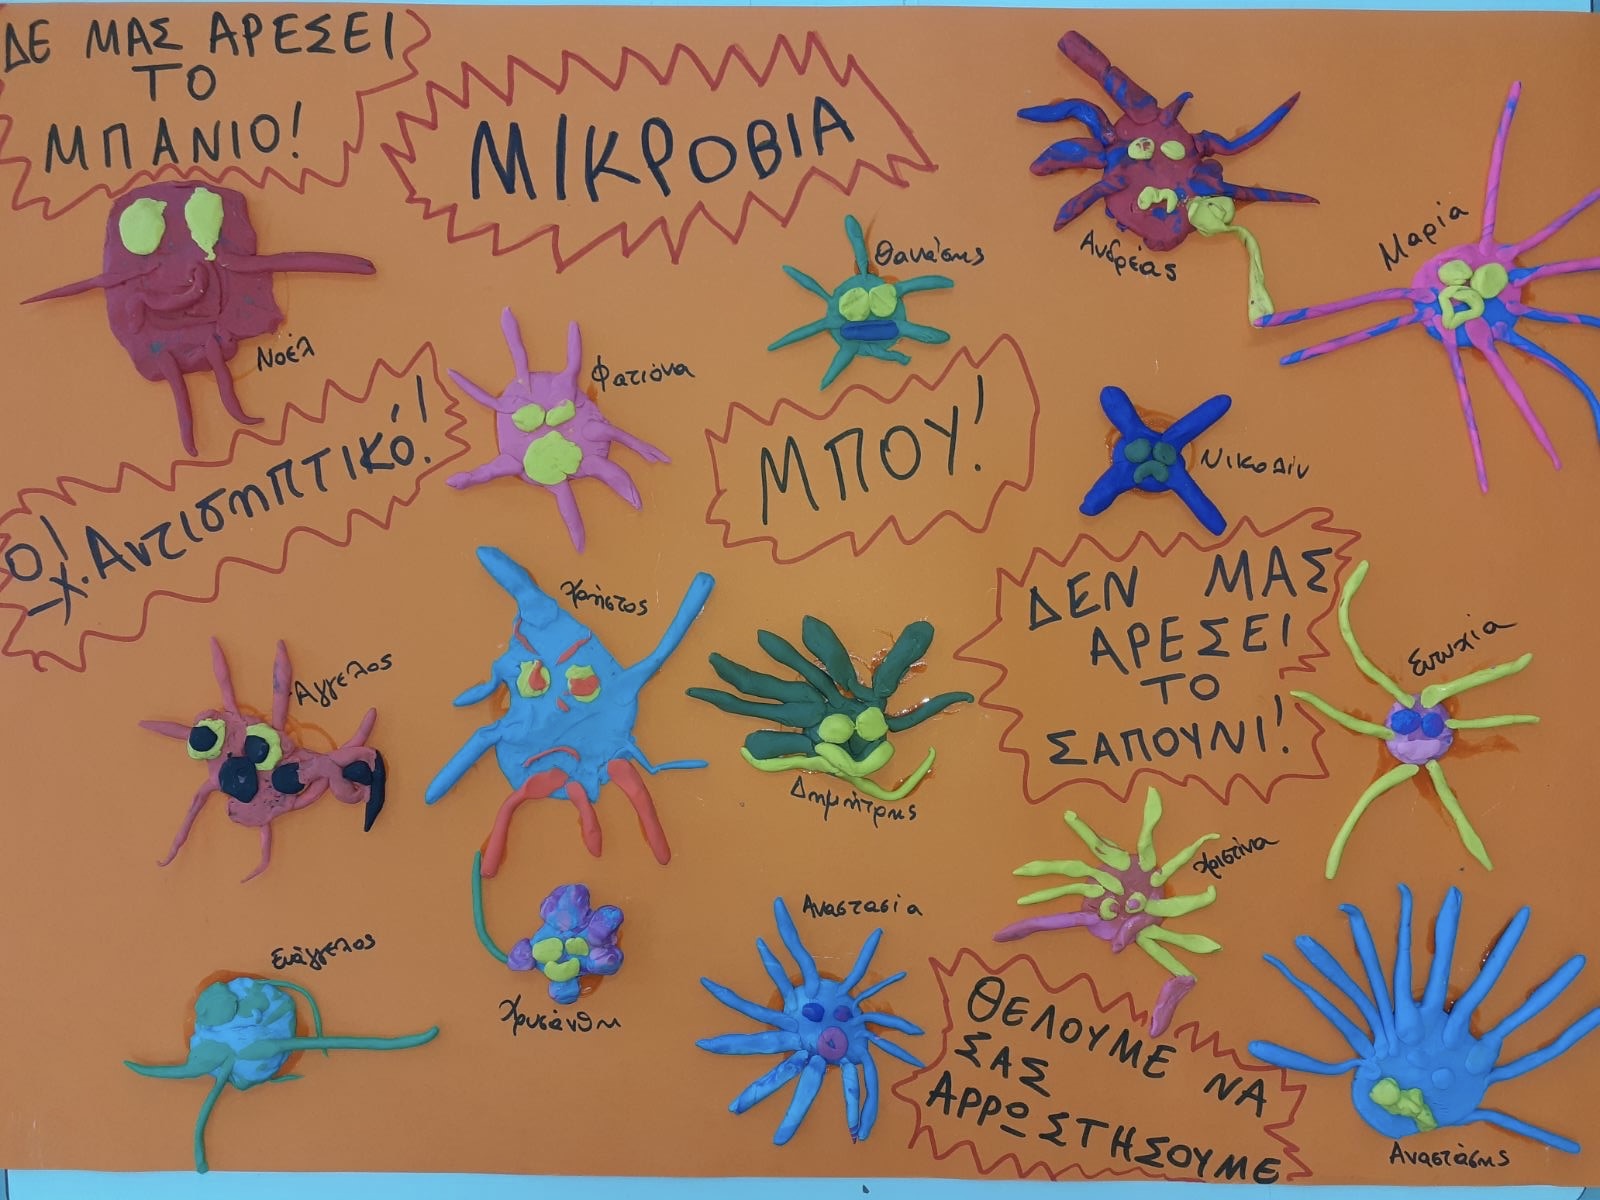 ΔΕ ΜΑΣ ΑΡΕΣΕΙ
ΤΟ
ΜΠΑΝΙΟ!
ΜΙΚΡΟΒΙΑ
Νοέλ
Θανάσης
Ανδρέας
Μαρία
Φατιόνα
Όχι! Αντισηπτικό!
ΜΠΟΥ!
Νικολίν
Χρήστος
Άγγελος
Δημήτρης
ΔΕΝ ΜΑΣ
ΑΡΕΣΕΙ
ΤΟ
ΣΑΠΟΥΝΙ!
Ευτυχία
Χριστίνα
Ευάγγελος
Χρυσάνθη
Αναστασία
ΘΕΛΟΥΜΕ ΝΑ
ΣΑΣ
ΑΡΡΩΣΤΗΣΟΥΜΕ
Αναστάσης